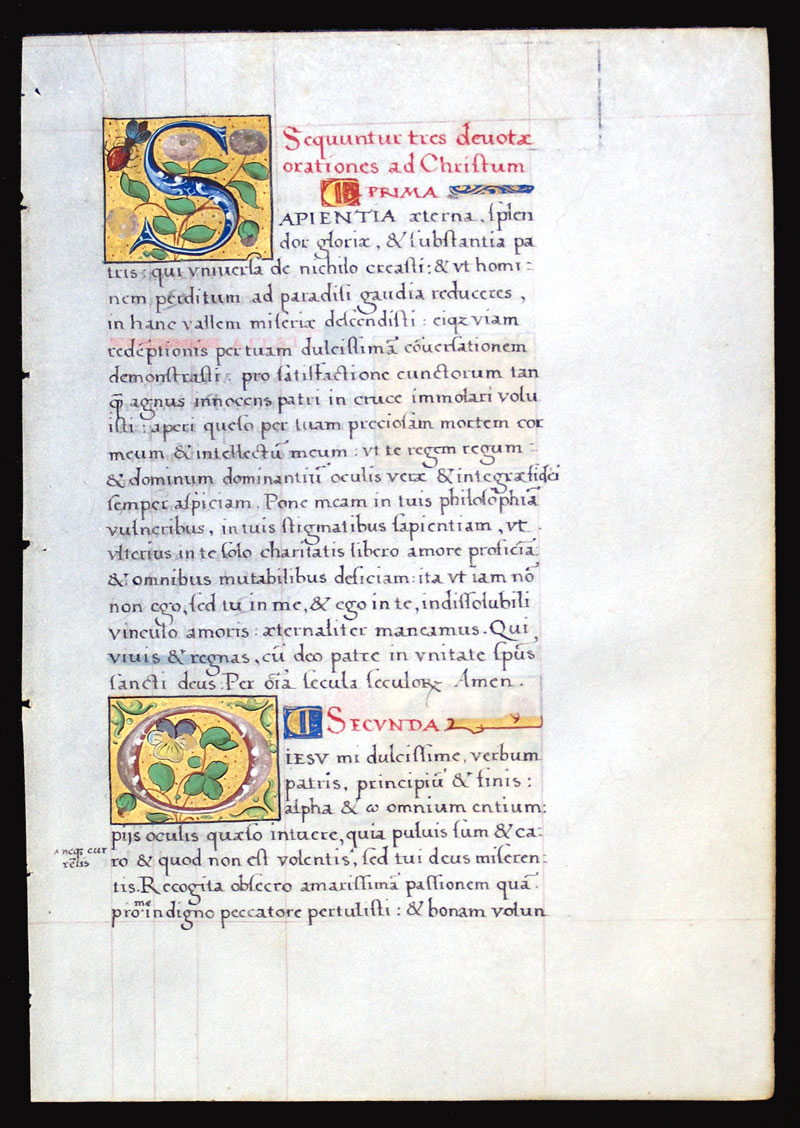 Sequuntur tres deuotæ
orationes ad Christum
PRIMA
SAPIENTIA æterna, splen
dor gloriæ, & substantia pa
tris: qui vniuersa de nichilo creasti: & vt homi:
nem perditum ad paradisi gaudia reduceres,
in hanc vallem miseriæ descendisti: eiqꝫ viam
redẽptionis per tuam dulcissimã cõuersationem
demonstrasti: pro satisfactione cunctorum tan
q̃ agnus innocens patri in cruce immolari volu
isti: aperi queso per tuam preciosam mortem cor
meum & intellectũ meum: vt te regem regum
& dominum dominantiũ oculis veræ & integræ fidei
semper aspiciam. Pone meam in tuis philosophiã
vulneribus, in tuis stigmatibus sapientiam, vt
vlterius in te solo charitatis libero amore proficiã
& omnibus mutabilibus deficiam: ita vt iam nõ
non ego, sed tu in me, & ego in te, indissolubili
vinculo amoris: æternaliter maneamus. Qui
viuis & regnas, cũ deo patre in vnitate spũs
sancti deus: Per oĩa secula seculoꝝ Amen.
SECVNDA
O IESV mi dulcissime, verbum
patris, principiũ & finis:
alpha & ω omnium entium:
pijs oculis quæso intuere, quia puluis sum & ca:
ro & quod non est volentis, sed tui deus miseren:
^ neqꝫ cur
rẽtis
tis. Recogita obsecro amarissimã passionem quã
pro me indigno peccatore pertulisti: & bonam volun